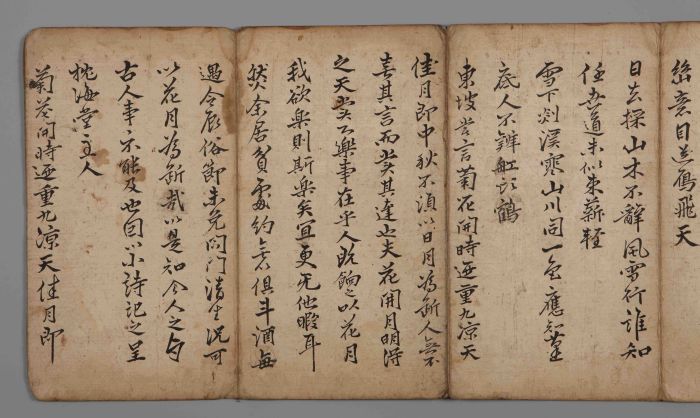 意目送鴈飛天
日去採山木不辭風雪行誰知
任吾道未似束薪輕
雪下剡溪寒山川同一色應知蓬
底人不辨舡頭鶴
東坡嘗言菊花開時迺重九凉天
佳月即中秋不湏以日月爲斷人無不
喜其言而賞其達也夫花開月明得
之天賞心樂事在乎人既餉之以花月
我欲樂則斯樂矣宜更无他暇耳
然余居貧處約無以俱斗酒每
遇令辰俗節未免閉門清坐況可
以花月爲斷哉以是知今人之与
古人事不能及也因以小詩記之呈
枕海堂主人
菊花開時迺重九凉天佳月即